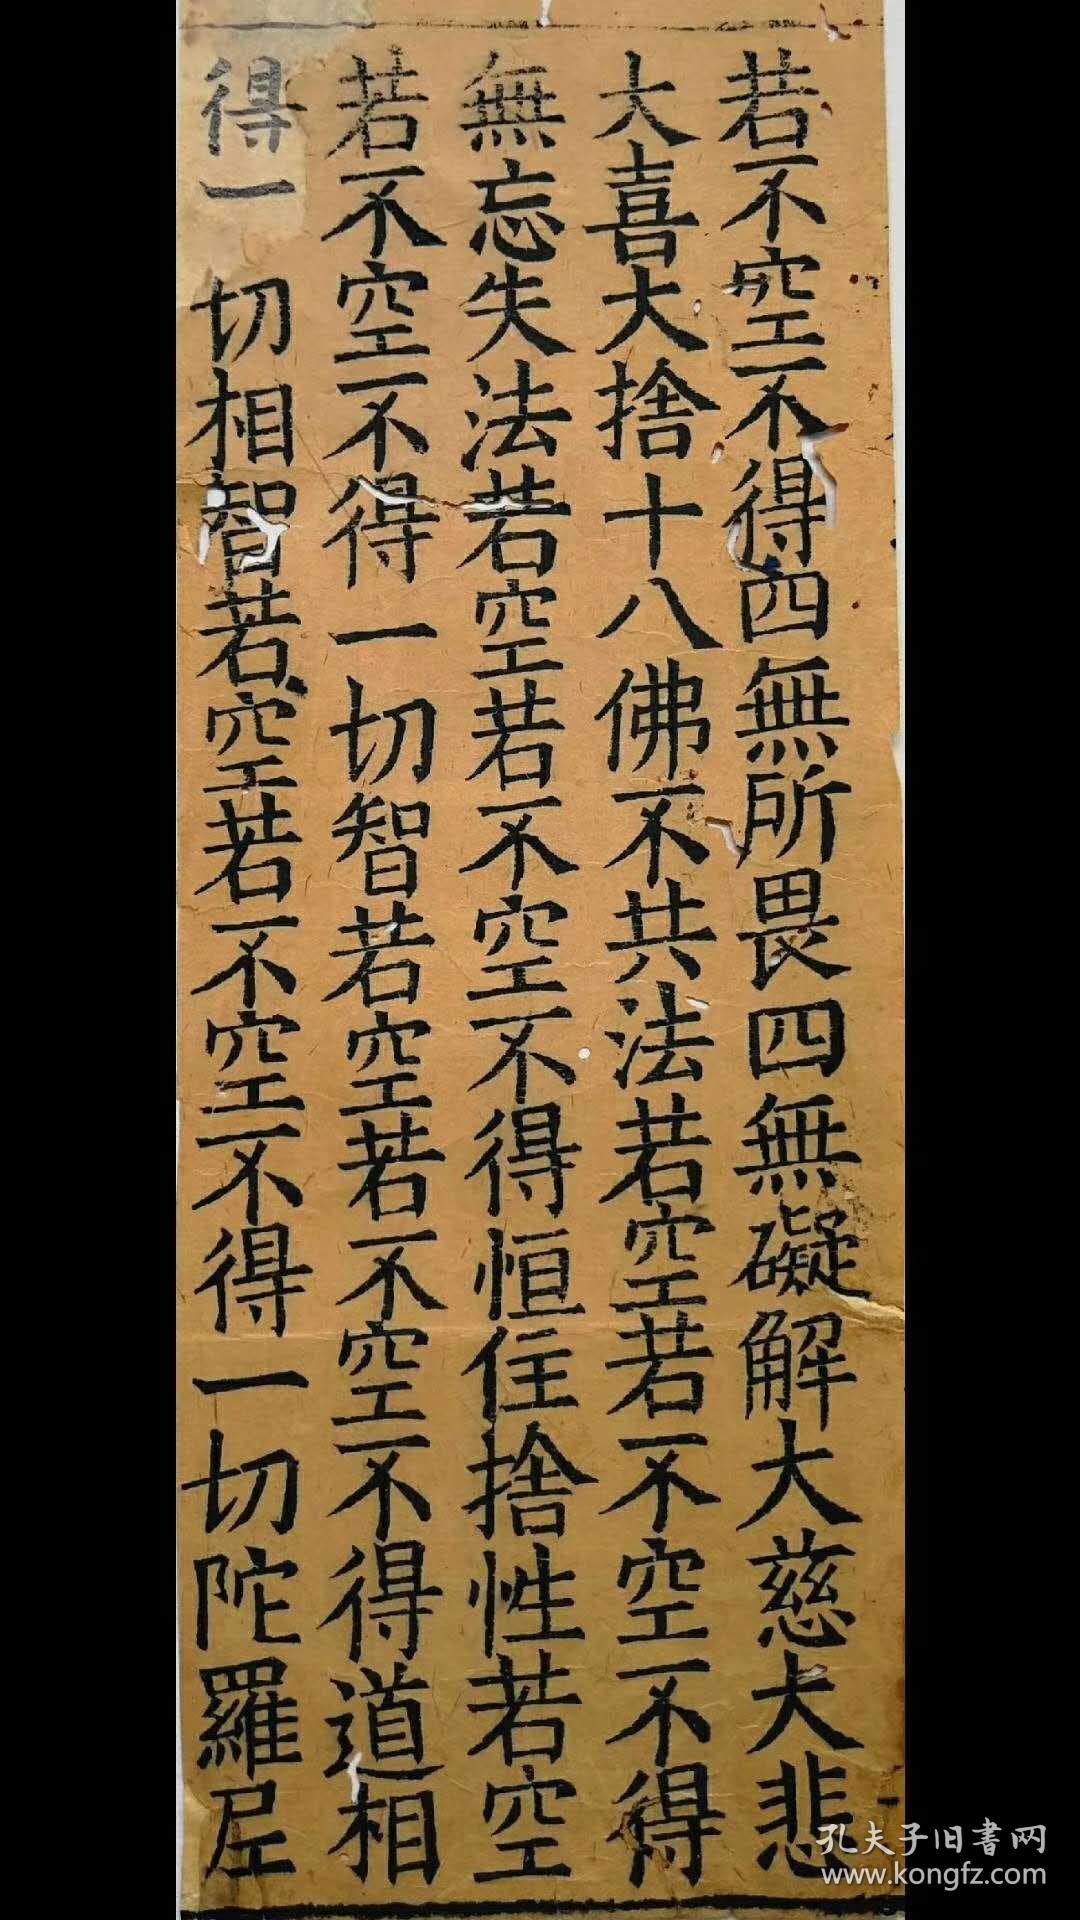 若不空不得四無所畏四無礙解大慈大悲
大喜大捨十八佛不共法若空若不空不得
無忘失法若空若不空不得恒住捨性若空
若不空不得一切智若空若不空不得道相
得一切相智若空若不空不得一切陀羅尼
孔夫子旧書网
www.kongfz.com